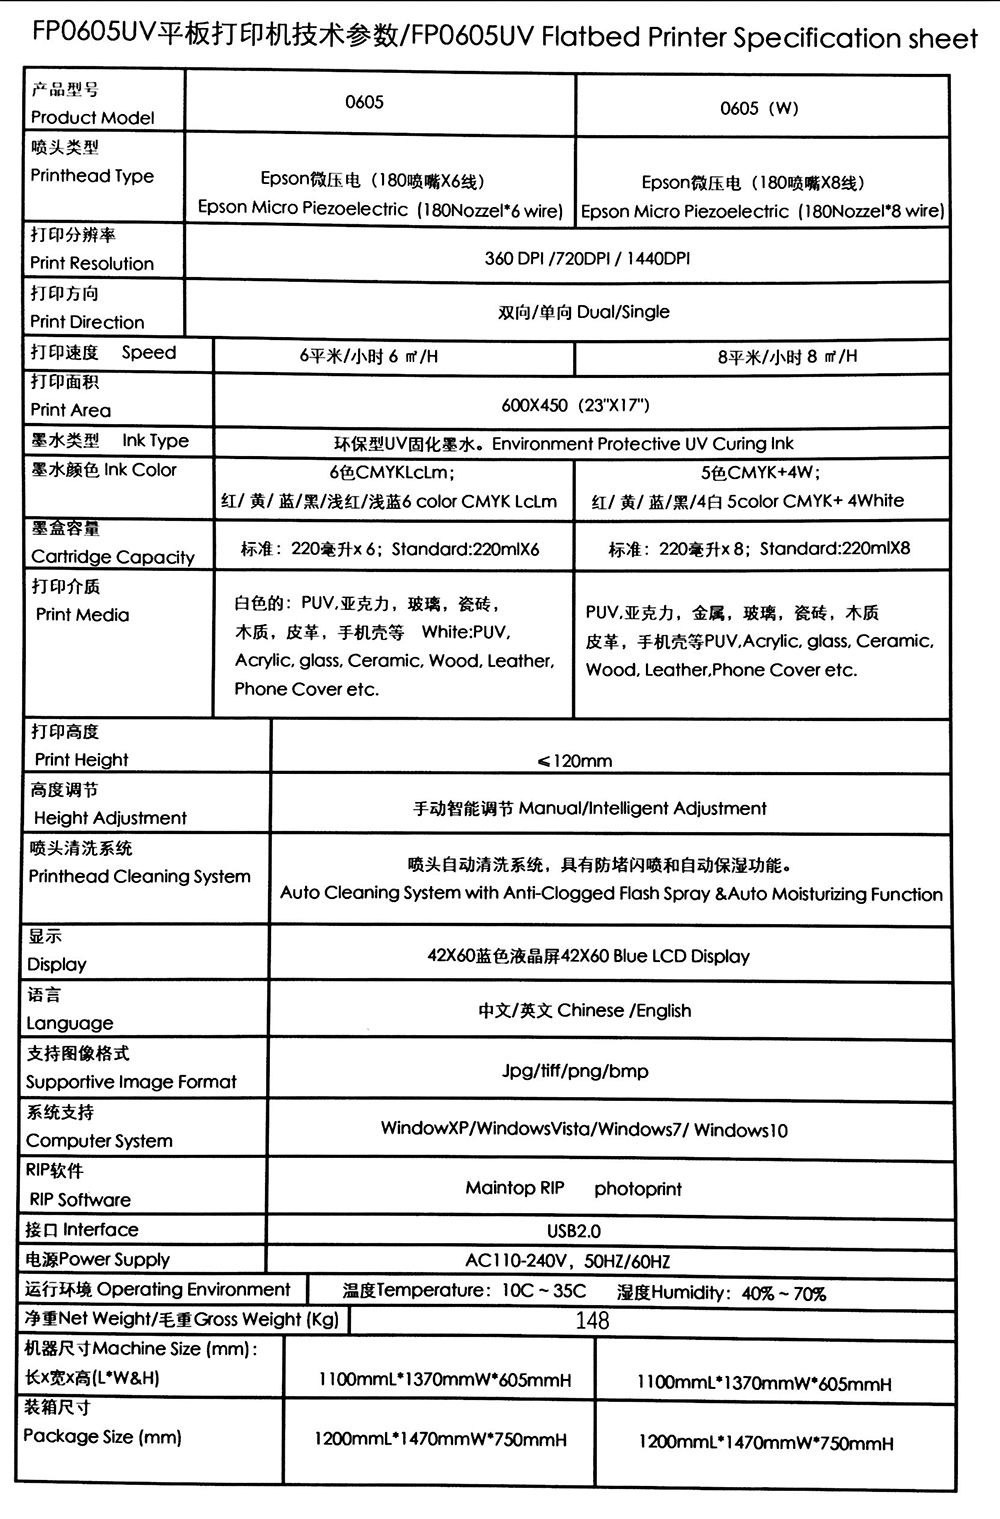 FP0605UV平板打印机技术参数/FP0605UV Flatbed Printer Specification sheet
产品型号
Product Model
0605
0605（W）
喷头类型
Printhead Type
Epson微压电（180喷嘴X6线）
Epson Micro Piezoelectric (180Nozzel*6 wire)
Epson微压电（180喷嘴X8线）
Epson Micro Piezoelectric (180Nozzel*8 wire)
打印分辨率
Print Resolution
360 DPI /720DPI / 1440DPI
打印方向
Print Direction
双向/单向 Dual/Single
打印速度 Speed
6平米/小时 6 ㎡/H
8平米/小时 8 ㎡/H
打印面积
Print Area
600X450（23"X17"）
墨水类型 Ink Type
环保型UV固化墨水。Environment Protective UV Curing Ink
墨水颜色 Ink Color
6色CMYKLcLm；
红/ 黄/ 蓝/黑/浅红/浅蓝6 color CMYK LcLm
5色CMYK+4W；
红/ 黄/ 蓝/黑/4白 5color CMYK+ 4White
墨盒容量
Cartridge Capacity
标准：220毫升x 6；Standard:220mlX6
标准：220毫升x 8；Standard:220mlX8
打印介质
Print Media
白色的：PUV,亚克力，玻璃，瓷砖，
木质，皮革，手机壳等 White:PUV,
Acrylic, glass, Ceramic, Wood, Leather,
Phone Cover etc.
PUV,亚克力，金属，玻璃，瓷砖，木质
皮革，手机壳等PUV,Acrylic, glass, Ceramic,
Wood, Leather,Phone Cover etc.
打印高度
Print Height
≤120mm
高度调节
Height Adjustment
手动智能调节 Manual/Intelligent Adjustment
喷头清洗系统
Printhead Cleaning System
喷头自动清洗系统，具有防堵闪喷和自动保湿功能。
Auto Cleaning System with Anti-Clogged Flash Spray &Auto Moisturizing Function
显示
Display
42X60蓝色液晶屏42X60 Blue LCD Display
语言
Language
中文/英文 Chinese /English
支持图像格式
Supportive Image Format
Jpg/tiff/png/bmp
系统支持
Computer System
WindowXP/WindowsVista/Windows7/ Windows10
RIP软件
RIP Software
Maintop RIP photoprint
接口 Interface
USB2.0
电源Power Supply
AC110-240V，50HZ/60HZ
运行环境 Operating Environment
温度Temperature：10C ~ 35C 湿度Humidity：40% ~ 70%
净重Net Weight/毛重Gross Weight (Kg)
148
机器尺寸Machine Size (mm)：
长x宽x高(L*W&H)
1100mmL*1370mmW*605mmH
1100mmL*1370mmW*605mmH
装箱尺寸
Package Size (mm)
1200mmL*1470mmW*750mmH
1200mmL*1470mmW*750mmH